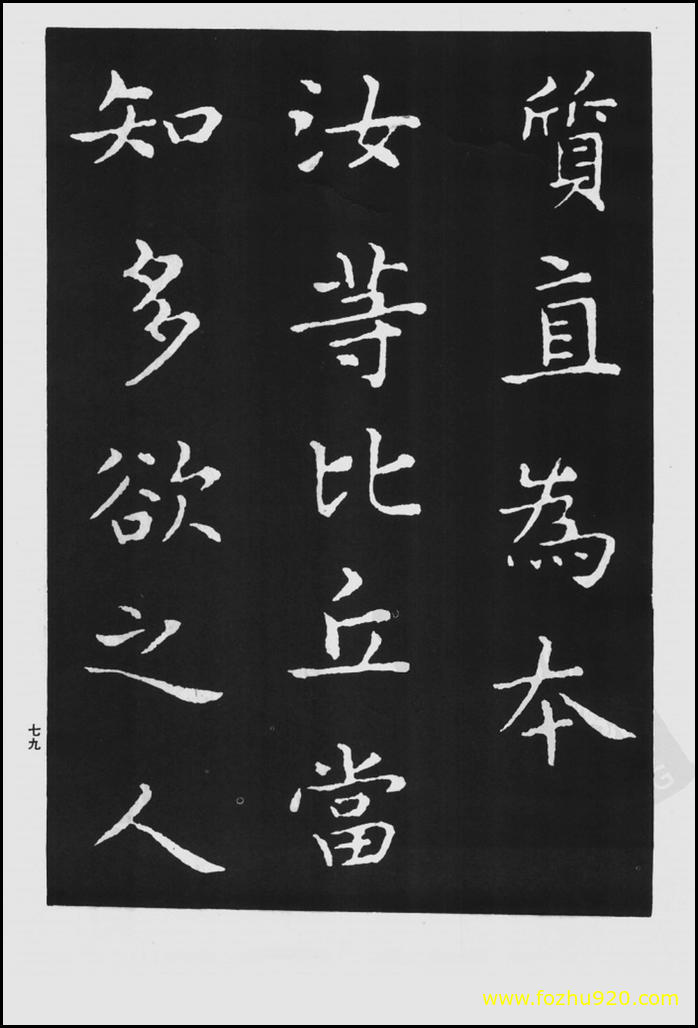 質直為本
汝等比丘當
知多欲之人
七九
www.fozhu920.com